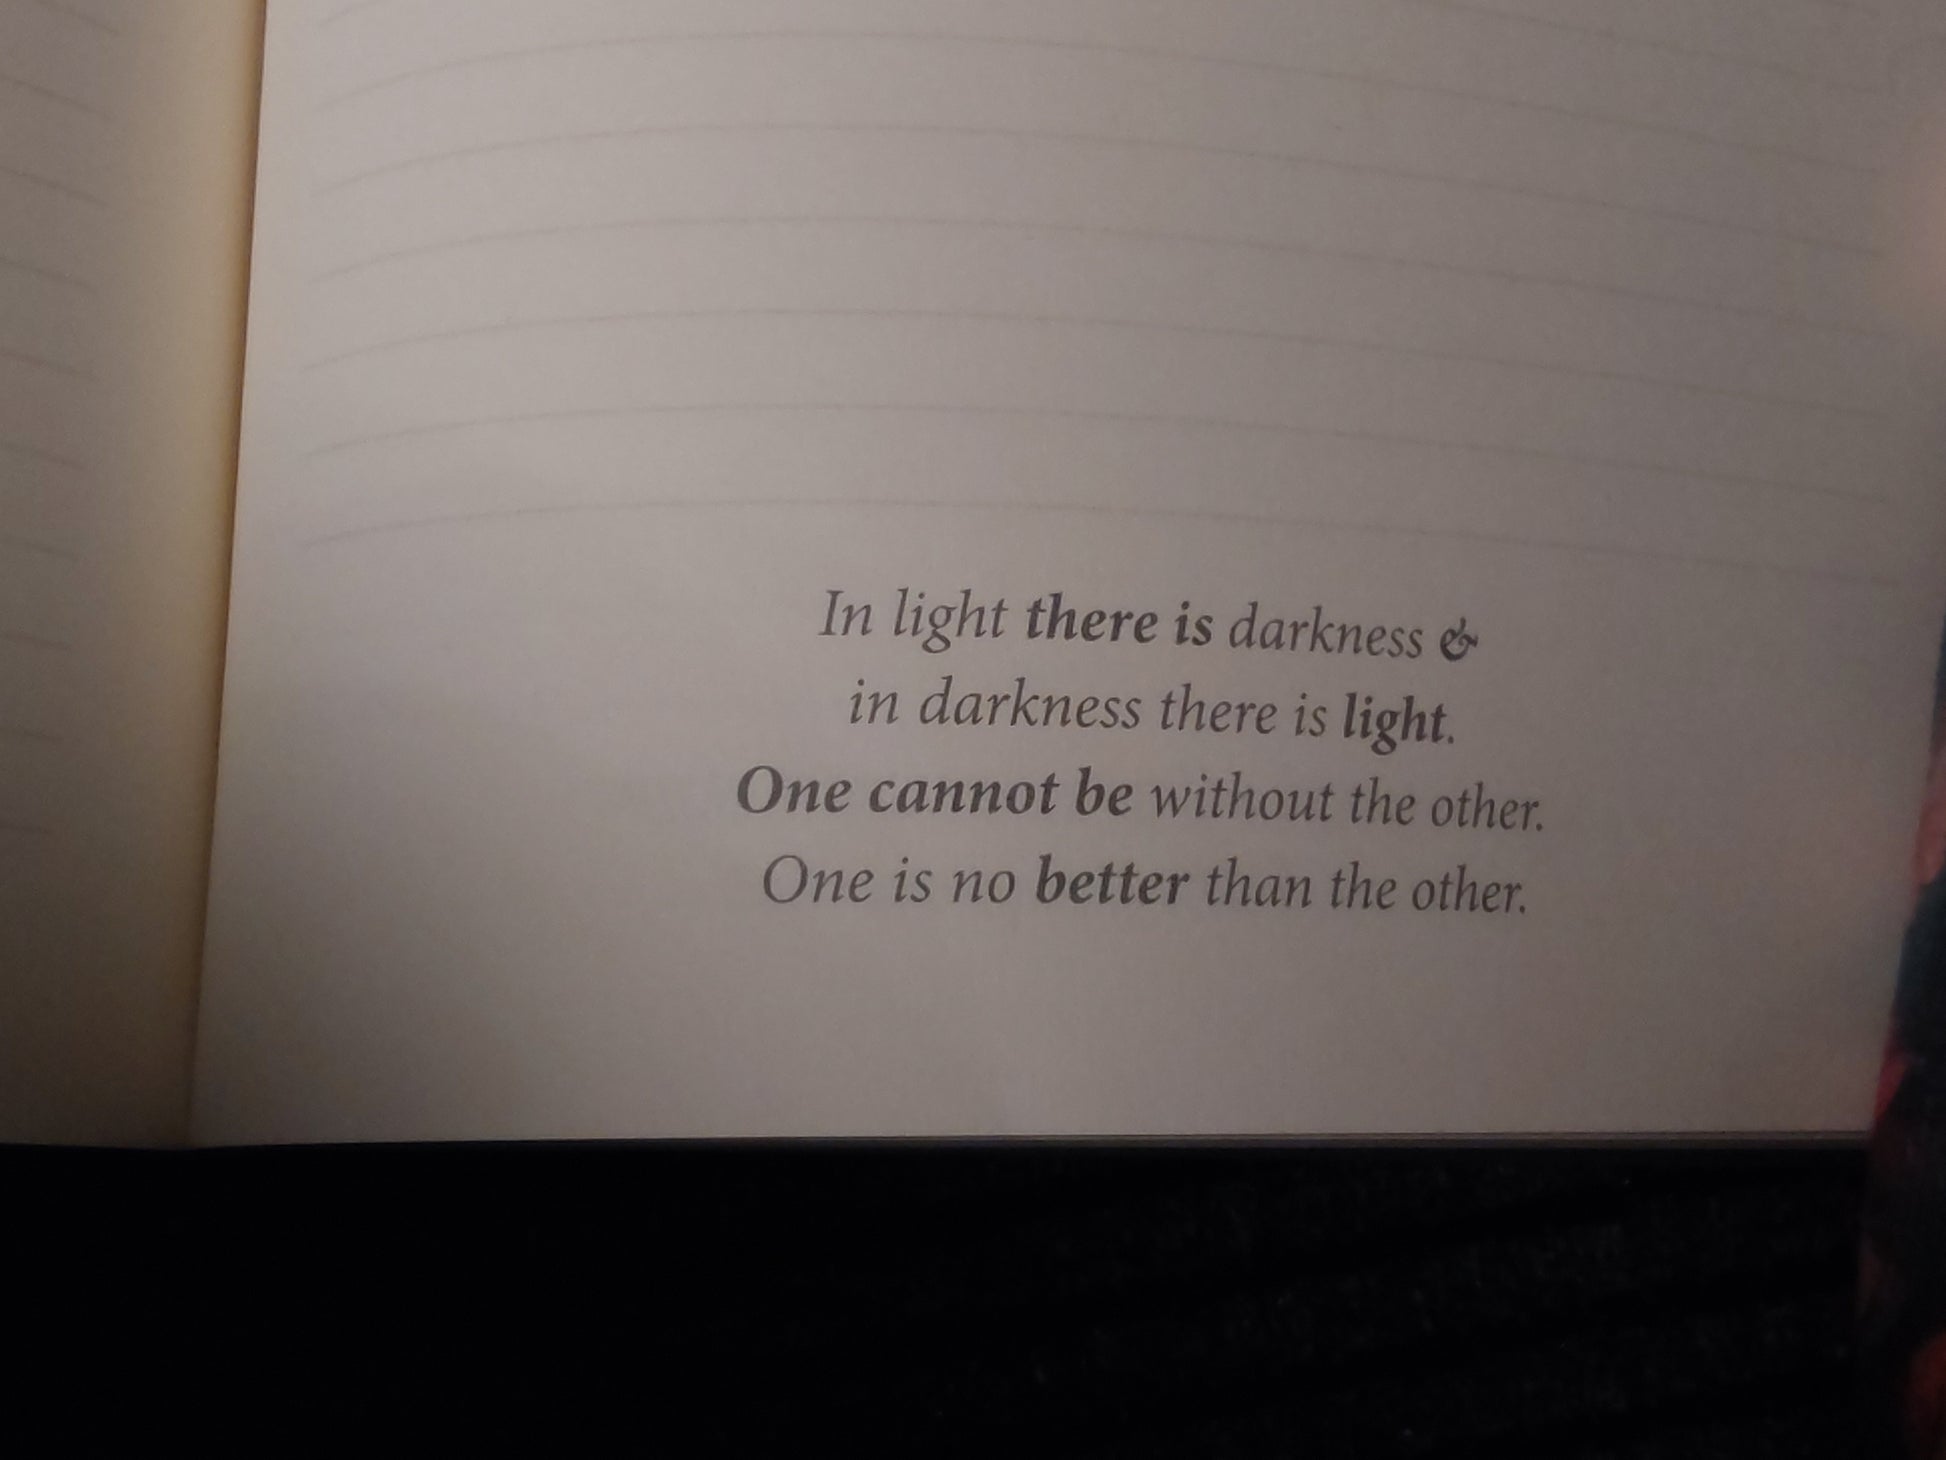 In light there is darkness &
in darkness there is light.
One cannot be without the other.
One is no better than the other.